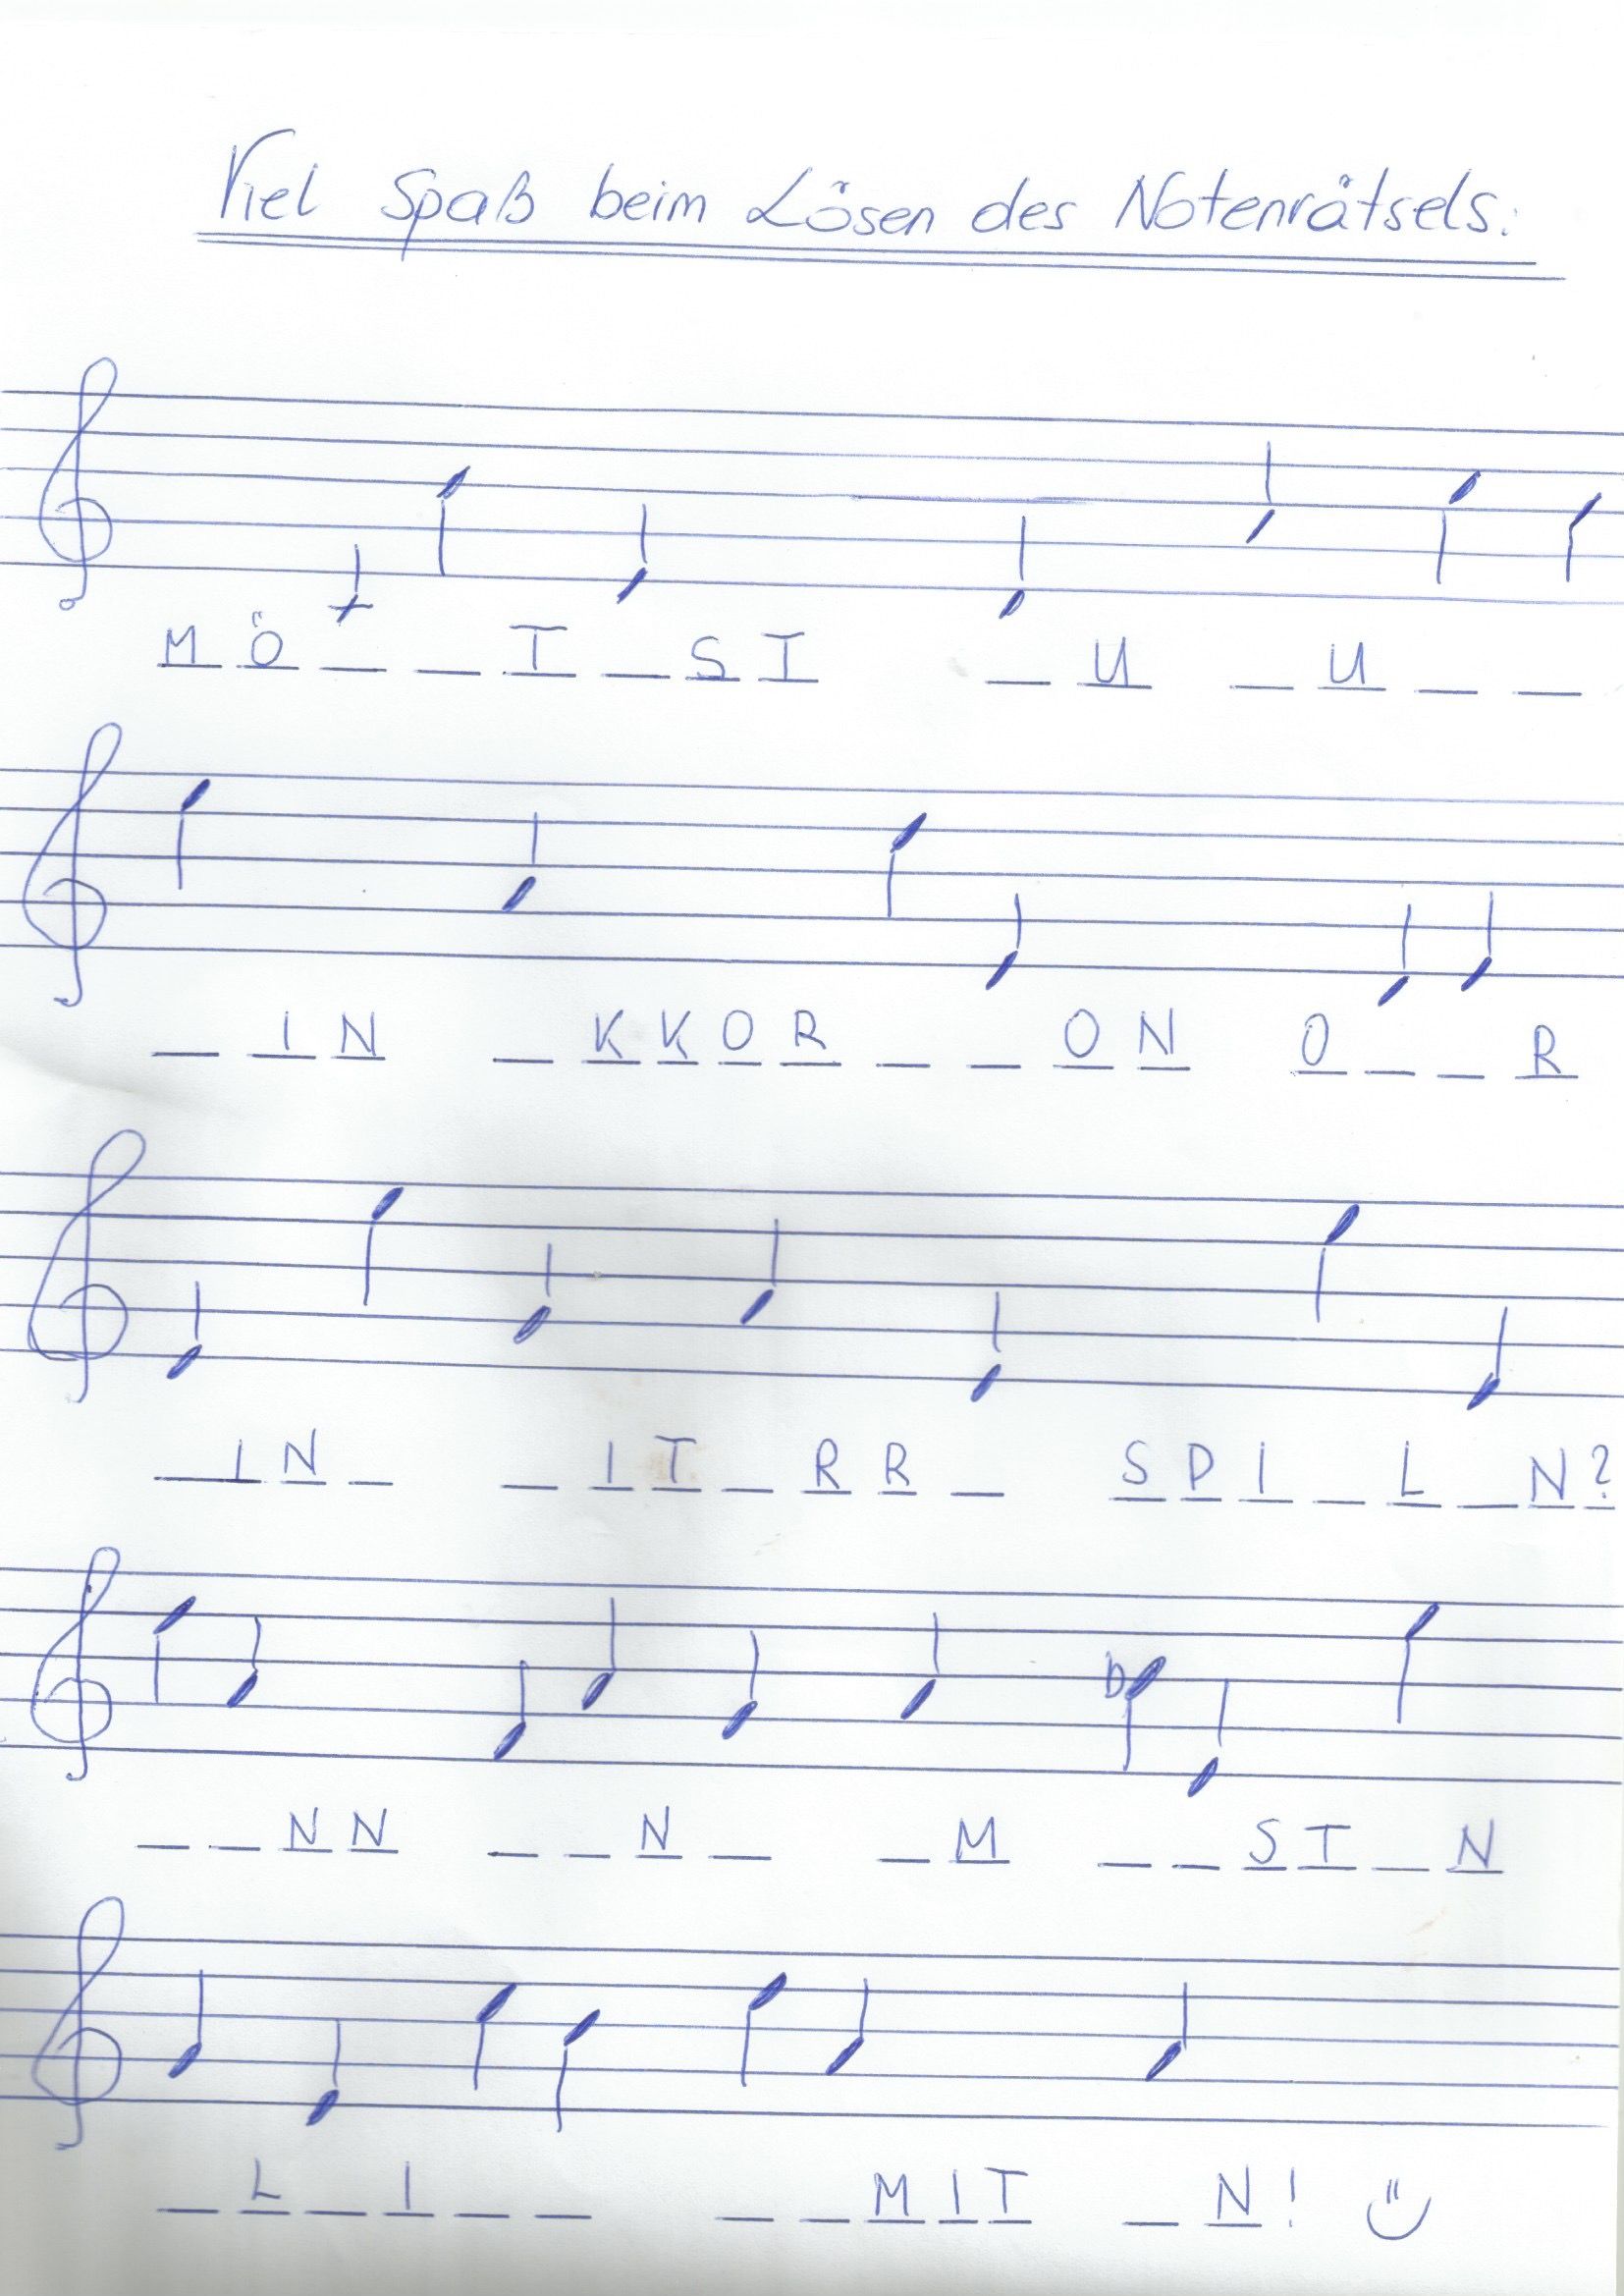 Viel Spaß beim Lösen des Notenrätsels:
M Ö _ _ T _ S T _ U _ U _ _
_ I N _ K K O R _ _ O N O _ _ R
_ I N _ _ I T _ R R _ S P I _ L _ N ?
b
_ _ N N _ _ N _ _ M _ _ S T _ N
_ L _ I _ _ _ _ M I T _ N !